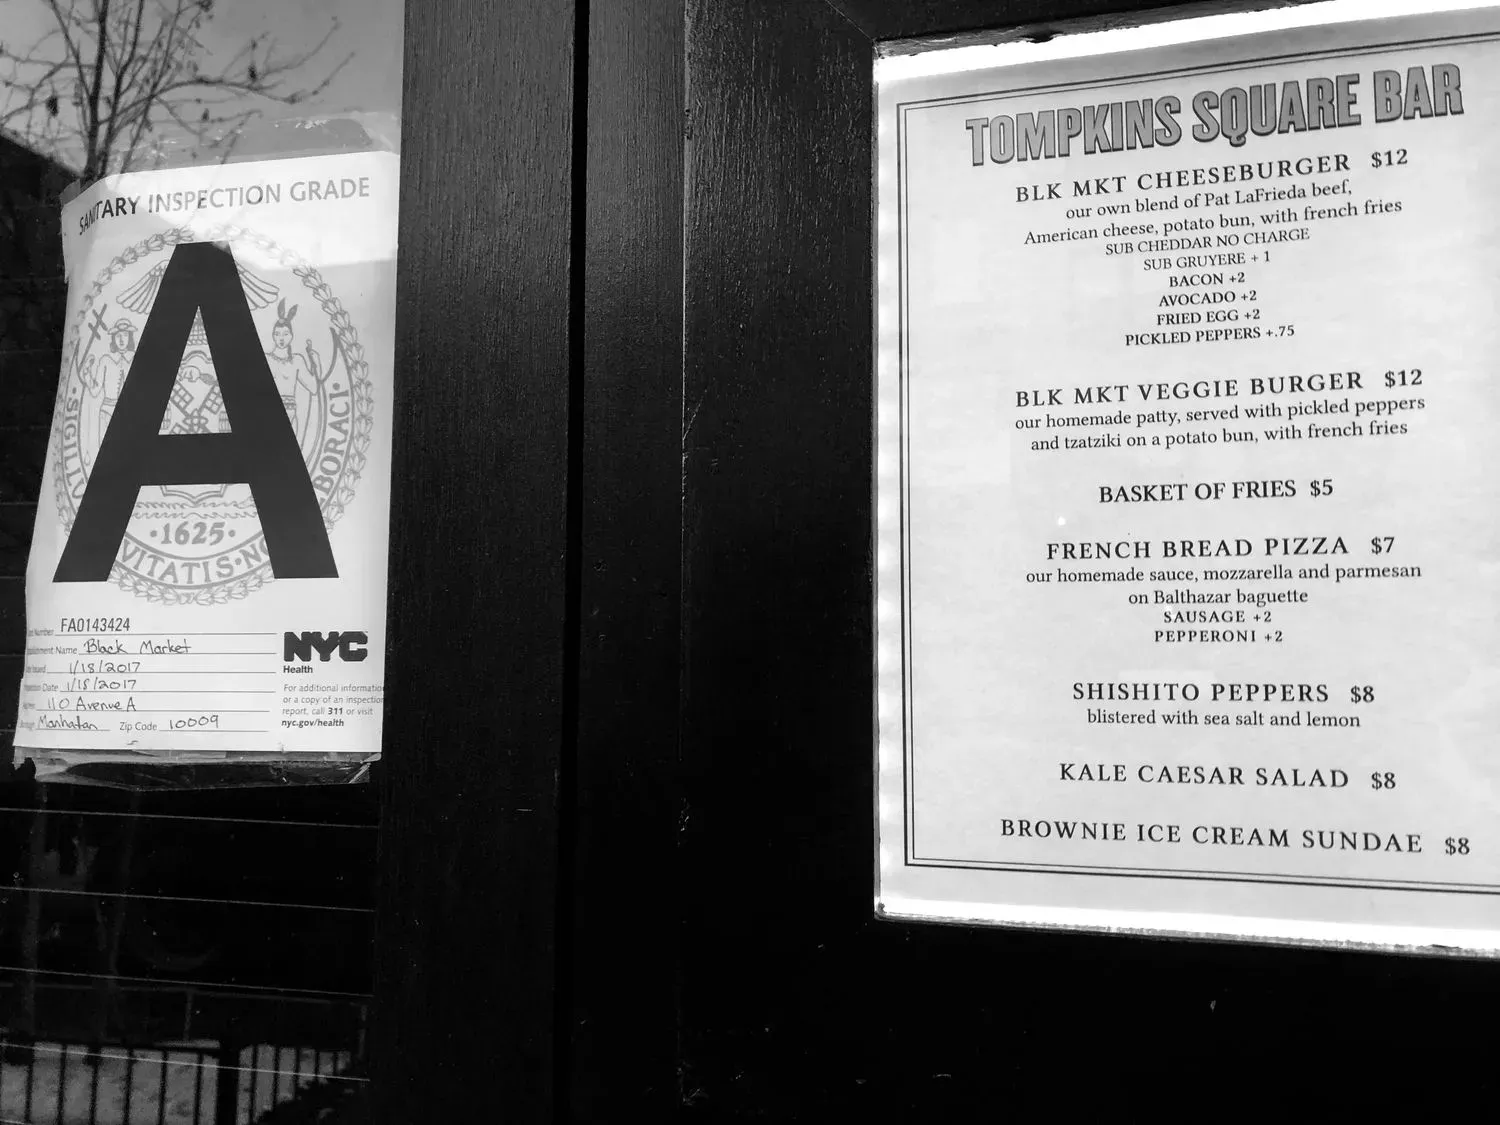 SANITARY INSPECTION GRADE
A
SIGILLV
BORACI
·1625·
VITATIS·NO
FA0143424
Name Black Market
Issued 1/18/2017
Date 1/18/2017
110 Avenue A
Manhattan Zip Code 10009
NYC
Health
For additional information
or a copy of an inspection
report, call 311 or visit
nyc.gov/health
TOMPKINS SQUARE BAR
BLK MKT CHEESEBURGER $12
our own blend of Pat LaFrieda beef,
American cheese, potato bun, with french fries
SUB CHEDDAR NO CHARGE
SUB GRUYERE + 1
BACON +2
AVOCADO +2
FRIED EGG +2
PICKLED PEPPERS +.75
BLK MKT VEGGIE BURGER $12
our homemade patty, served with pickled peppers
and tzatziki on a potato bun, with french fries
BASKET OF FRIES $5
FRENCH BREAD PIZZA $7
our homemade sauce, mozzarella and parmesan
on Balthazar baguette
SAUSAGE +2
PEPPERONI +2
SHISHITO PEPPERS $8
blistered with sea salt and lemon
KALE CAESAR SALAD $8
BROWNIE ICE CREAM SUNDAE $8